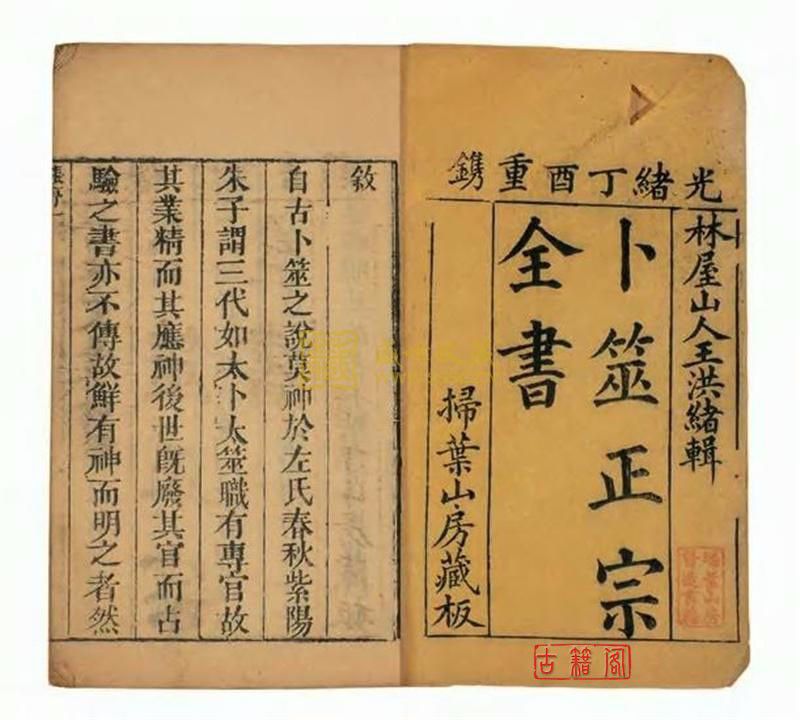 光緒丁酉重鐫
林屋山人王洪緒輯
卜筮正宗
全書
掃葉山房藏板
古籍阁
敘
自古卜筮之說莫神於左氏春秋紫陽
朱子謂三代如太卜太筮職有專官故
其業精而其應神後世旣廢其官而占
驗之書亦不傳故鮮有神而明之者然